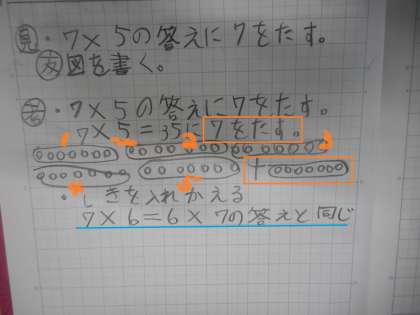 見・7×5の答えに7をたす。
友図を書く。
考・7×5の答えに7をたす。
7×5=35に7をたす。
1 2 3
+
4 5
・しきを入れかえる
7×6=6×7の答えと同じ